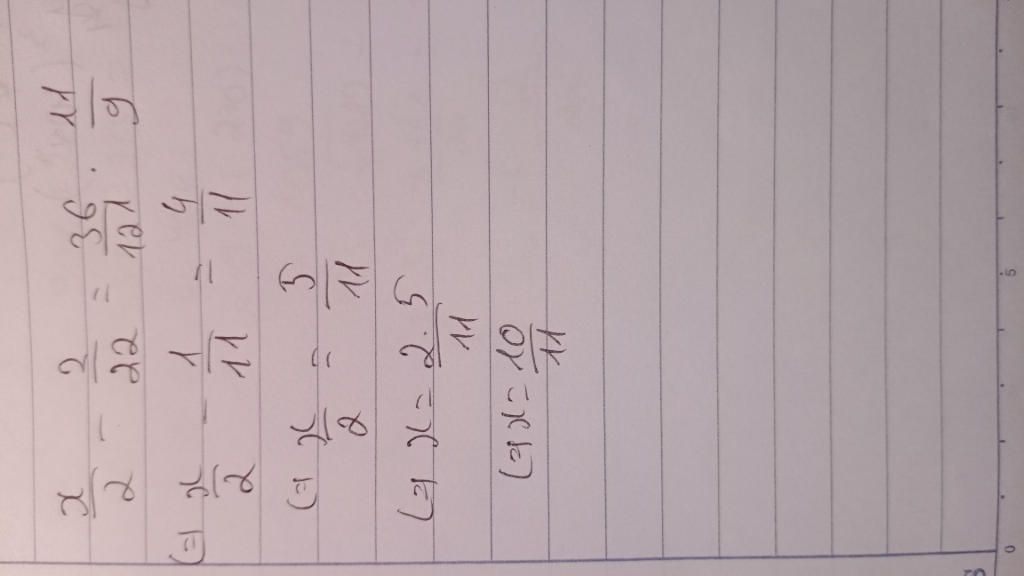 x/2 - 2/22 = 36/121 . 11/9
(=) x/2 - 1/11 = 4/11
(=) x/2 = 5/11
(=) x = 2.5/11
(=) x = 10/11
0
5